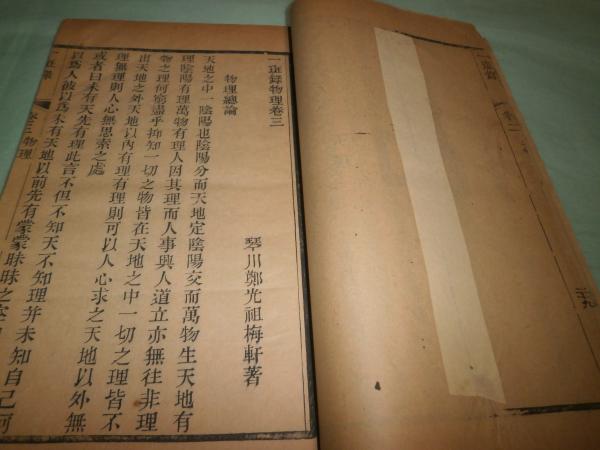 一斑錄物理卷三
琴川鄭光祖梅軒著
物理總論
天地之中一陰陽也陰陽分而天地定陰陽交而萬物生天地有
理陰陽有理萬物有理人因其理而人事興人道立亦無往非理
物之理何窮盡乎抑知一切之物皆在天地之中一切之理皆不
出天地之外天地以內有理有理則可以人心求之天地以外無
理無理則人心無思索之處
或者曰未有天先有理此言不但不知天不知理并未知自己何
以爲人彼以爲未有天地以前先有蒙蒙昧昧之
卷三 物理
一斑錄